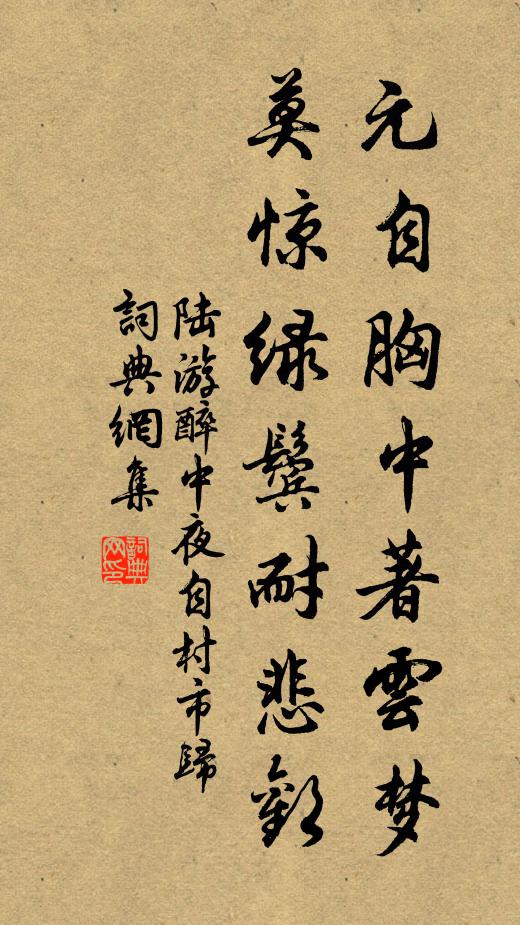 元自胸中著雲梦
莫惊绿鬓耐悲歡
陆游醉中夜自村市歸
詞典網集
詞典
网印